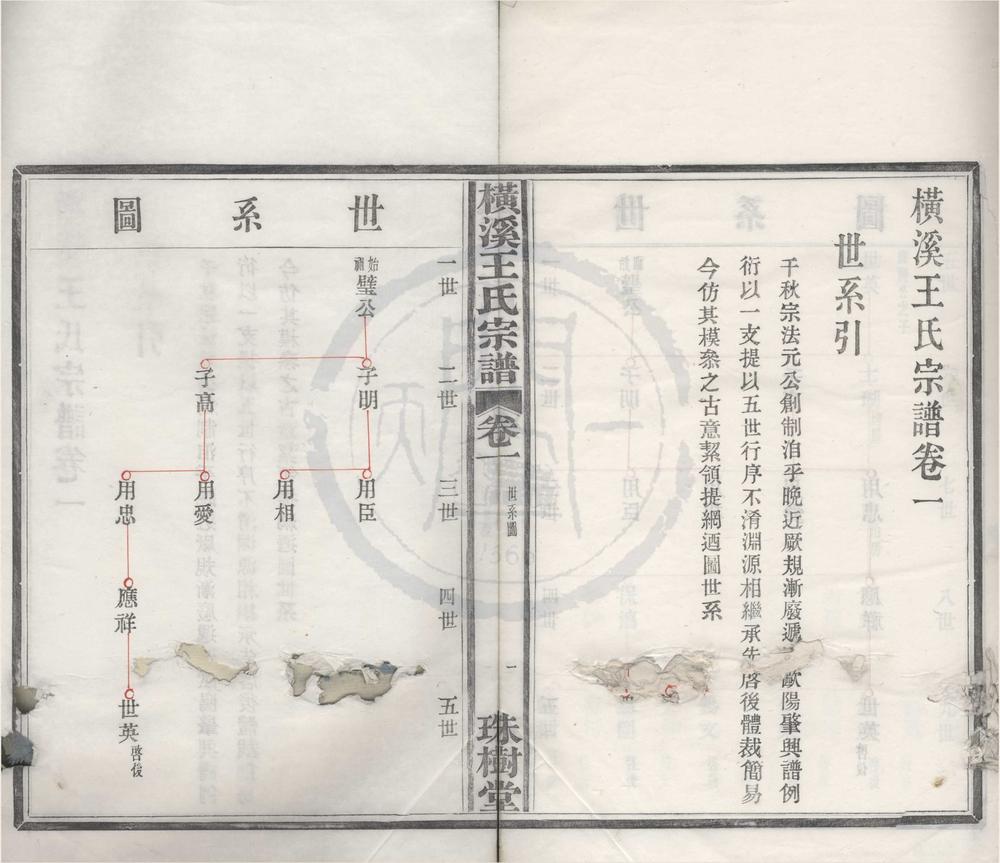 橫溪王氏宗譜卷一
世系引
千秋宗法元公創制洎乎晚近厥規漸廢遞歐陽肇興譜例
衍以一支提以五世行序不淆淵源相繼承先啓後體裁簡易
今仿其模叅之古意絜領提綱迺圖世系
橫溪王氏宗譜
卷一
世系圖
一
珠樹堂
世系圖
一世
二世
三世
四世
五世
始祖
璧公
子明
用臣
用相
子高
用愛
用忠
應祥
世英
啓後